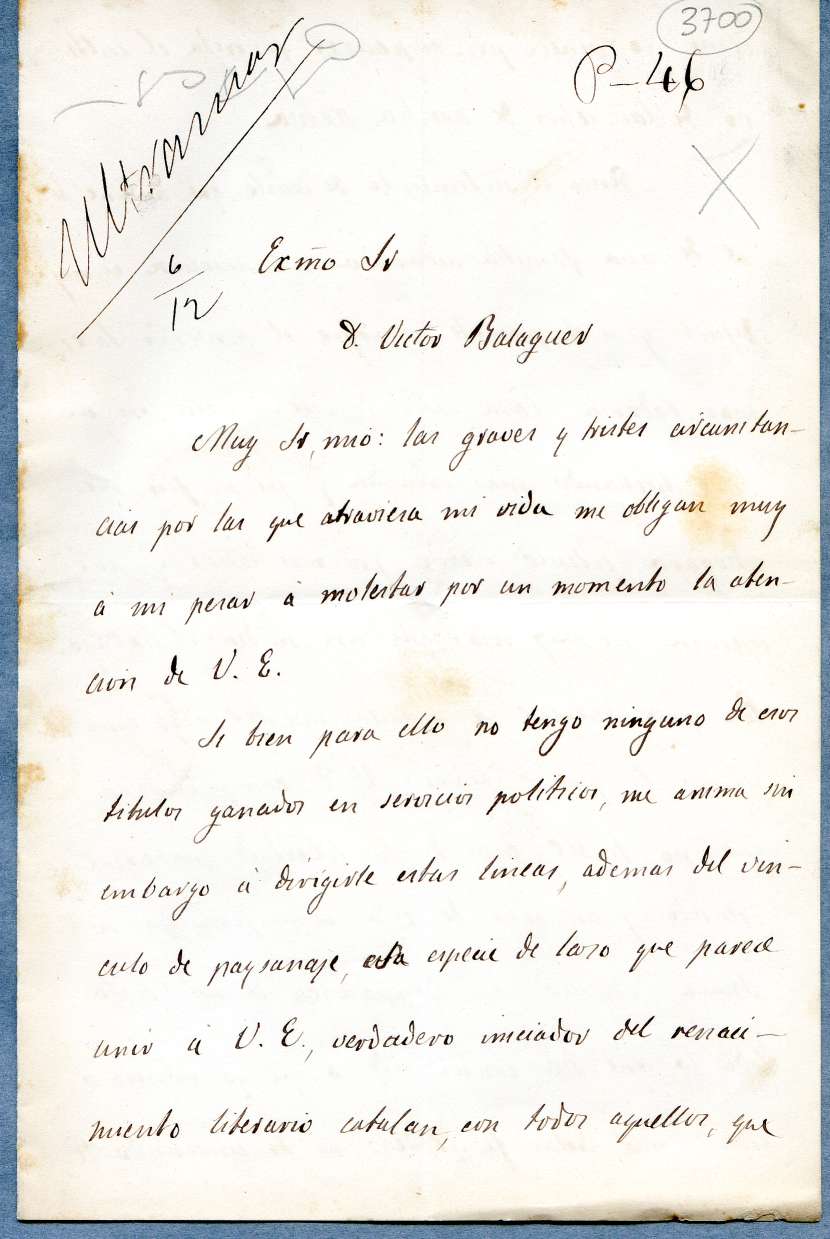 3700
P-46
Ultramar
6/12
Exm̃o Sr
D. Victor Balaguer
Muy Sr, mio: las graves y tristes circunstan-
cias por las que atraviesa mi vida me obligan muy
á mi pesar á molestar por un momento la aten-
ción de V. E.
Si bien para ello no tengo ninguno de esos
titulos ganados en servicios políticos, me anima sin
embargo á dirigirle estas lineas, ademas del vin-
culo de paysanaje, esta especie de lazo que parece
unir á V. E., verdadero iniciador del renaci-
miento literario catalan, con todos aquellos, que